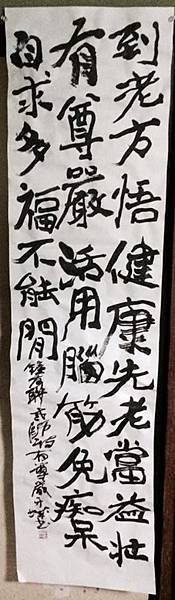 到老方悟健康先老當益壯
有尊嚴活用腦筋免痴呆
自求多福不能閒